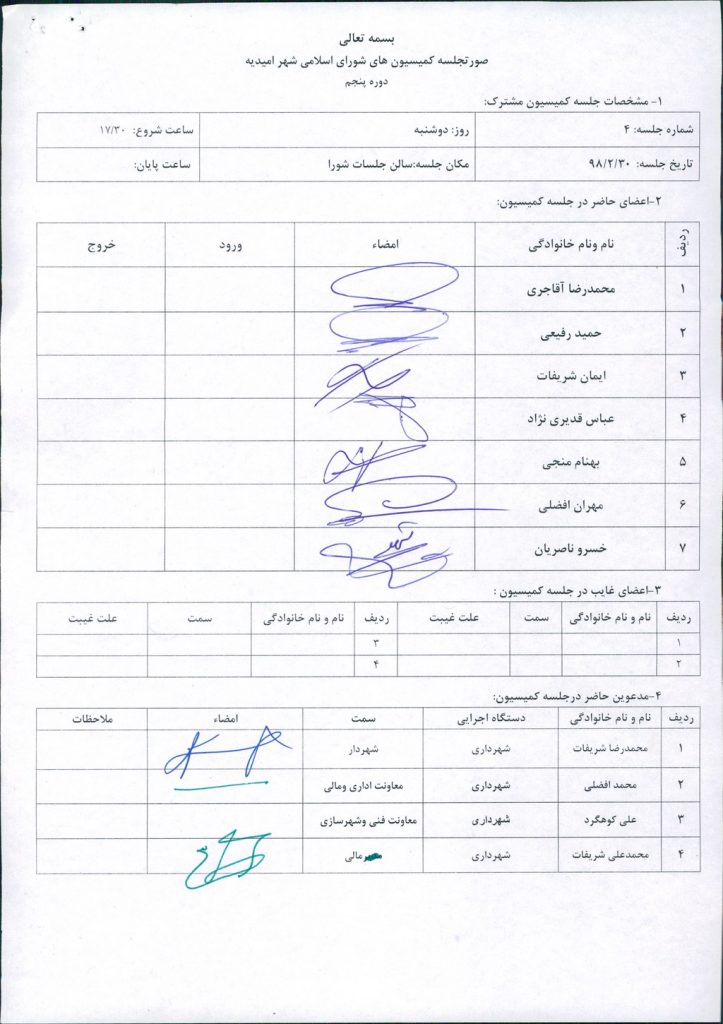 بسمه تعالی
صورتجلسه کمیسیون های شورای اسلامی شهر امیدیه
دوره پنجم
۱- مشخصات جلسه کمیسیون مشترک:
شماره جلسه: ۴ روز: دوشنبه ساعت شروع: ۱۷/۳۰
تاریخ جلسه: ۹۸/۲/۳۰ مکان جلسه:سالن جلسات شورا ساعت پایان:
۲-اعضای حاضر در جلسه کمیسیون:
ردیف نام ونام خانوادگی امضاء ورود خروج
۱ محمدرضا آقاجری
۲ حمید رفیعی
۳ ایمان شریفات
۴ عباس قدیری نژاد
۵ بهنام منجی
۶ مهران افضلی
۷ خسرو ناصریان
۳-اعضای غایب در جلسه کمیسیون :
ردیف نام و نام خانوادگی سمت علت غیبت ردیف نام و نام خانوادگی سمت علت غیبت
۱ ۳
۲ ۴
۴-مدعوین حاضر درجلسه کمیسیون:
ردیف نام و نام خانوادگی دستگاه اجرایی سمت امضاء ملاحظات
۱ محمدرضا شریفات شهرداری شهردار
۲ محمد افضلی شهرداری معاونت اداری ومالی
۳ علی کوهگرد شهرداری معاونت فنی وشهرسازی
۴ محمدعلی شریفات شهرداری مالی